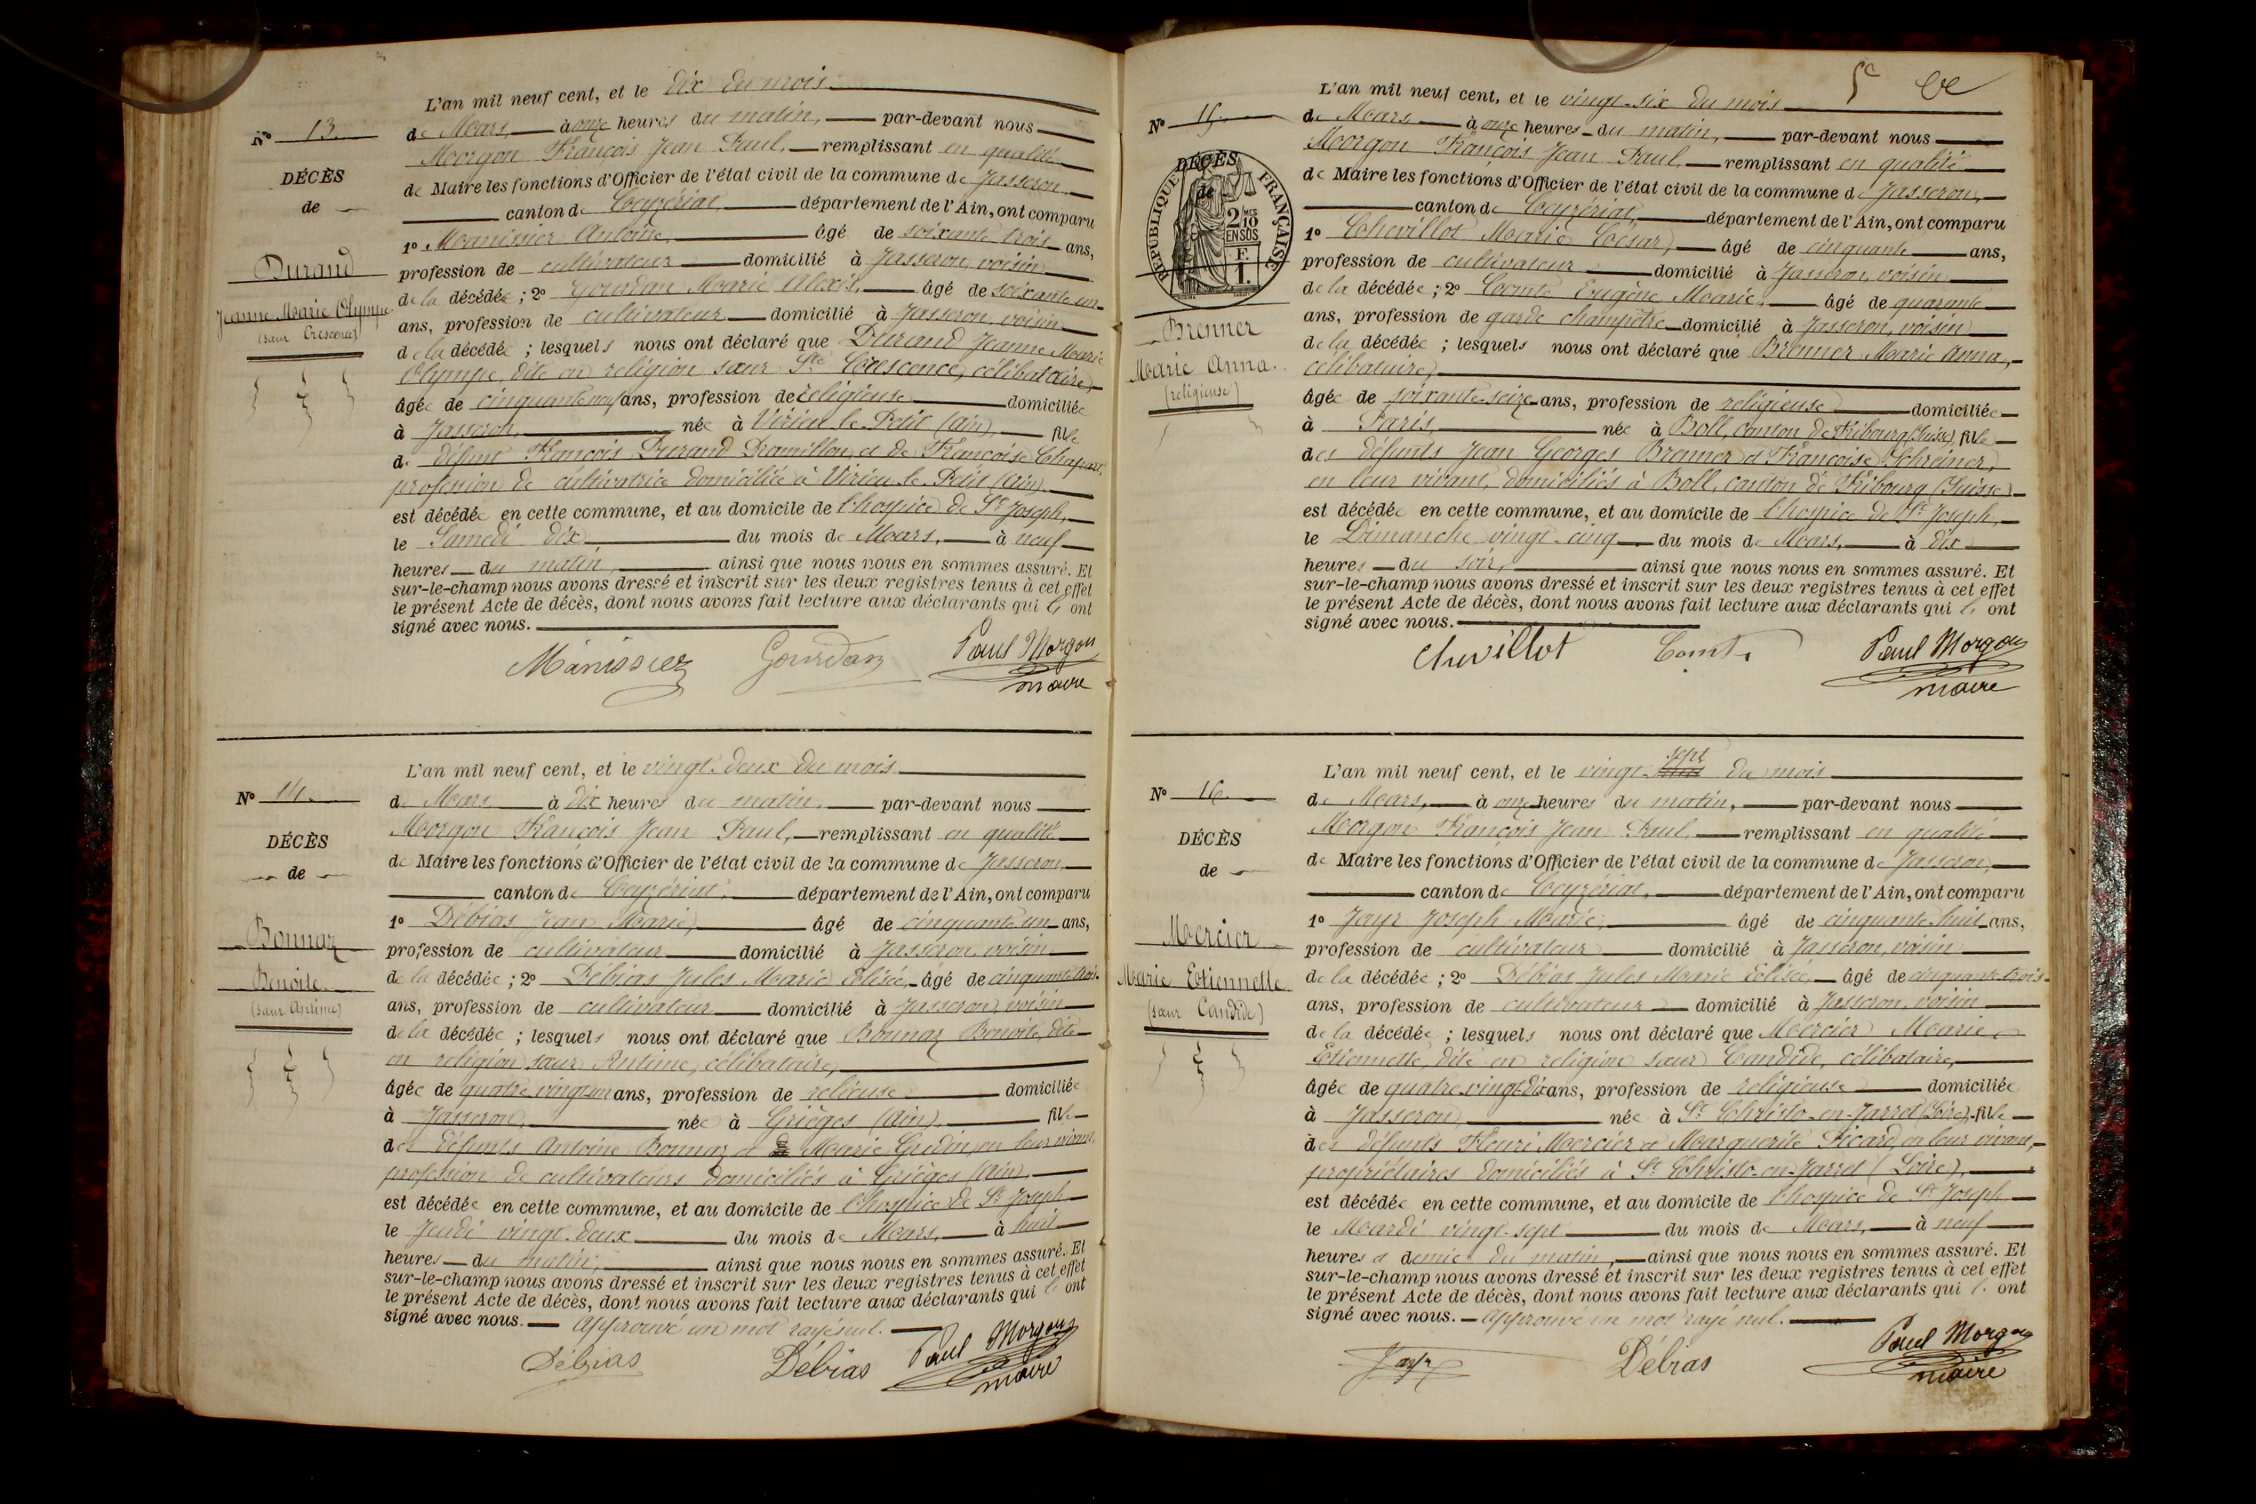 N° 13.
DÉCÈS
de
Durand
Jeanne Marie Olympe
(sœur Crescence)
L'an mil neuf cent, et le dix du mois
de Mars, à onze heures du matin, par-devant nous
Morgon François Jean Paul, remplissant en qualité
de Maire les fonctions d'Officier de l'état civil de la commune de Jasseron,
canton de Ceyzériat, département de l'Ain, ont comparu
1° Manissier Antoine, âgé de soixante trois ans,
profession de cultivateur domicilié à Jasseron, voisin
de la décédée ; 2° Gourdan Marie Alexis, âgé de soixante un
ans, profession de cultivateur domicilié à Jasseron, voisin
de la décédée ; lesquels nous ont déclaré que Durand Jeanne Marie
Olympe, dite en religion sœur Ste Crescence, célibataire,
âgée de cinquante neuf ans, profession de religieuse domiciliée
à Jasseron, née à Virieu-le-Petit (Ain), fille
de défunt François Durand Dramillon et de Françoise
profession de cultivatrice domiciliée à Virieu-le-Petit (Ain),
est décédée en cette commune, et au domicile de l'hospice de St Joseph,
le Samedi dix du mois de Mars, à neuf
heures du matin, ainsi que nous nous en sommes assuré. Et
sur-le-champ nous avons dressé et inscrit sur les deux registres tenus à cet effet
le présent Acte de décès, dont nous avons fait lecture aux déclarants qui l' ont
signé avec nous.
Manissier Gourdan Paul Morgon
maire
N° 14.
DÉCÈS
de
Bonnaz
Benoite
(sœur Antime)
L'an mil neuf cent, et le vingt-deux du mois
de Mars à dix heures du matin, par-devant nous
Morgon François Jean Paul, remplissant en qualité
de Maire les fonctions d'Officier de l'état civil de la commune de Jasseron,
canton de Ceyzériat, département de l'Ain, ont comparu
1° Débias Jean Marie, âgé de cinquante un ans,
profession de cultivateur domicilié à Jasseron, voisin
de la décédée ; 2° Débias Jules Marie Elisée, âgé de cinquante trois
ans, profession de cultivateur domicilié à Jasseron, voisin
de la décédée ; lesquels nous ont déclaré que Bonnaz Benoite, dite
en religion sœur Antime, célibataire,
âgée de quatre vingt un ans, profession de relieuse domiciliée
à Jasseron, née à Grièges (Ain), fille
des défunts Antoine Bonnaz et de Marie Gudin, en leur vivant,
profession de cultivateurs domiciliés à Grièges (Ain)
est décédée en cette commune, et au domicile de l'hospice de St Joseph
le Jeudi vingt-deux du mois de Mars, à huit
heures du matin, ainsi que nous nous en sommes assuré. Et
sur-le-champ nous avons dressé et inscrit sur les deux registres tenus à cet effet
le présent Acte de décès, dont nous avons fait lecture aux déclarants qui l' ont
signé avec nous. Approuvé un mot rayé nul.
Débias Débias Paul Morgon
maire
5e
N° 15.
DÉCÈS
de
RÉPUBLIQUE FRANÇAISE
2/10 MES
EN SUS
1 F.
Brenner
Marie Anna
(religieuse)
L'an mil neuf cent, et le vingt-six du mois
de Mars à onze heures du matin, par-devant nous
Morgon François Jean Paul remplissant en qualité
de Maire les fonctions d'Officier de l'état civil de la commune de Jasseron,
canton de Ceyzériat, département de l'Ain, ont comparu
1° Chevillot Marie César, âgé de cinquante ans,
profession de cultivateur domicilié à Jasseron, voisin
de la décédée ; 2° Comte Eugène Marie, âgé de quarante
ans, profession de garde champêtre domicilié à Jasseron, voisin
de la décédée ; lesquels nous ont déclaré que Brenner Marie Anna,
célibataire,
âgée de soixante-seize ans, profession de religieuse domiciliée
à Paris, née à Boll, canton de Fribourg (Suisse), fille
des défunts Jean Georges Brenner et Françoise Schreiner,
en leur vivant, domiciliés à Boll, canton de Fribourg (Suisse)
est décédée en cette commune, et au domicile de l'hospice de St Joseph,
le Dimanche vingt-cinq du mois de Mars, à dix
heures du soir, ainsi que nous nous en sommes assuré. Et
sur-le-champ nous avons dressé et inscrit sur les deux registres tenus à cet effet
le présent Acte de décès, dont nous avons fait lecture aux déclarants qui l' ont
signé avec nous.
Chevillot Comte Paul Morgon
maire
N° 16.
DÉCÈS
de
Mercier
Marie Etiennette
(sœur Candide)
sept
L'an mil neuf cent, et le vingt- du mois
de Mars, à onze heures du matin, par-devant nous
Morgon François Jean Paul remplissant en qualité
de Maire les fonctions d'Officier de l'état civil de la commune de Jasseron,
canton de Ceyzériat, département de l'Ain, ont comparu
1° Jayr Joseph Marie, âgé de cinquante-huit ans,
profession de cultivateur domicilié à Jasseron, voisin
de la décédée ; 2° Débias Jules Marie Elisée, âgé de cinquante trois
ans, profession de cultivateur domicilié à Jasseron, voisin
de la décédée ; lesquels nous ont déclaré que Mercier Marie
Etiennette, dite en religion sœur Candide, célibataire,
âgée de quatre-vingt-dix ans, profession de religieuse domiciliée
à Jasseron, née à St Christo-en-Jarret (Loire), fille
des défunts Henri Mercier et Marguerite Picard, en leur vivant,
propriétaires domiciliés à St Christo-en-Jarret (Loire),
est décédée en cette commune, et au domicile de l'hospice de St Joseph
le Mardi vingt-sept du mois de Mars, à neuf
heures et demie du matin, ainsi que nous nous en sommes assuré. Et
sur-le-champ nous avons dressé et inscrit sur les deux registres tenus à cet effet
le présent Acte de décès, dont nous avons fait lecture aux déclarants qui l' ont
signé avec nous. Approuvé un mot rayé nul.
Jayr Débias Paul Morgon
maire